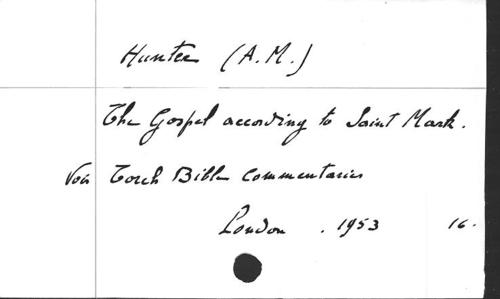 Hunter (A.M.)
The Gospel according to Saint Mark.
Voir Torch Bible Commentaries
London . 1953 16.